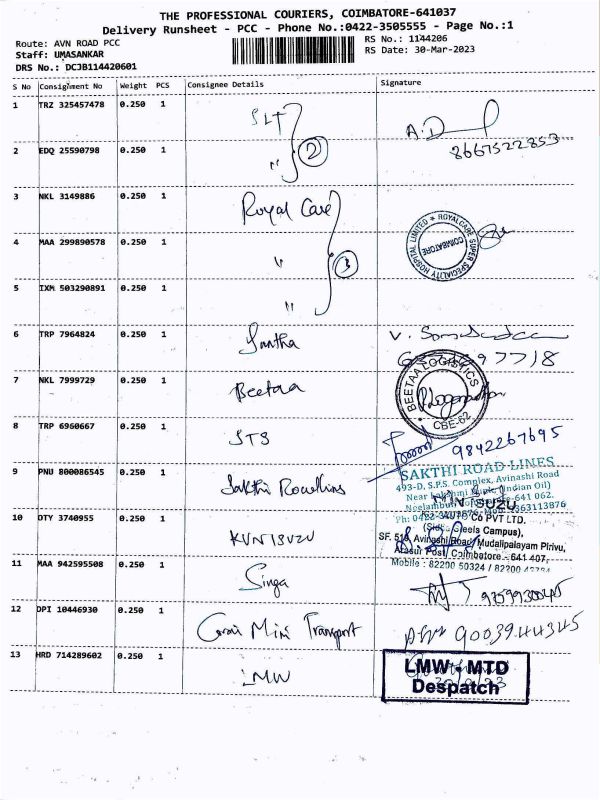 THE PROFESSIONAL COURIERS, COIMBATORE-641037
Delivery Runsheet - PCC - Phone No.:0422-3505555 - Page No.:1
Route: AVN ROAD PCC
RS No.: 1144206
Staff: UMASANKAR
RS Date: 30-Mar-2023
DRS No.: DCJB114420601
S No Consignment No Weight PCS Consignee Details Signature
1 TRZ 325457478 0.250 1 SLT A.D
2 EDQ 25590798 0.250 1 " 2 8667522853
3 NKL 3149886 0.250 1 Royal Care
ROYALCARE SUPER SPECIALITY HOSPITAL LIMITED
COIMBATORE
4 MAA 299890578 0.250 1 " 3
5 IXM 503290891 0.250 1 "
6 TRP 7964824 0.250 1 Santha V.
7 NKL 7999729 0.250 1 Beetaa
BEETAA LOGISTICS
CBE-62
8 TRP 6960667 0.250 1 STS 9842267695
9 PNU 800086545 0.250 1 Sakthi Roadlines
SAKTHI ROAD LINES
493-D, S.P.S. Complex, Avinashi Road
(Indian Oil)
641 062.
10 OTY 3740955 0.250 1 KUN ISUZU
ISUZU
Co PVT LTD.
Campus),
SF. Avinashi Road, Mudalipalayam Pirivu,
Arasur Post, Coimbatore - 641 407.
Mobile : 82200 50324 / 82200
11 MAA 942595508 0.250 1 Singa
12 DPI 10446930 0.250 1 Mini Transport 9003944345
13 HRD 714289602 0.250 1 LMW
LMW - MTD
Despatch